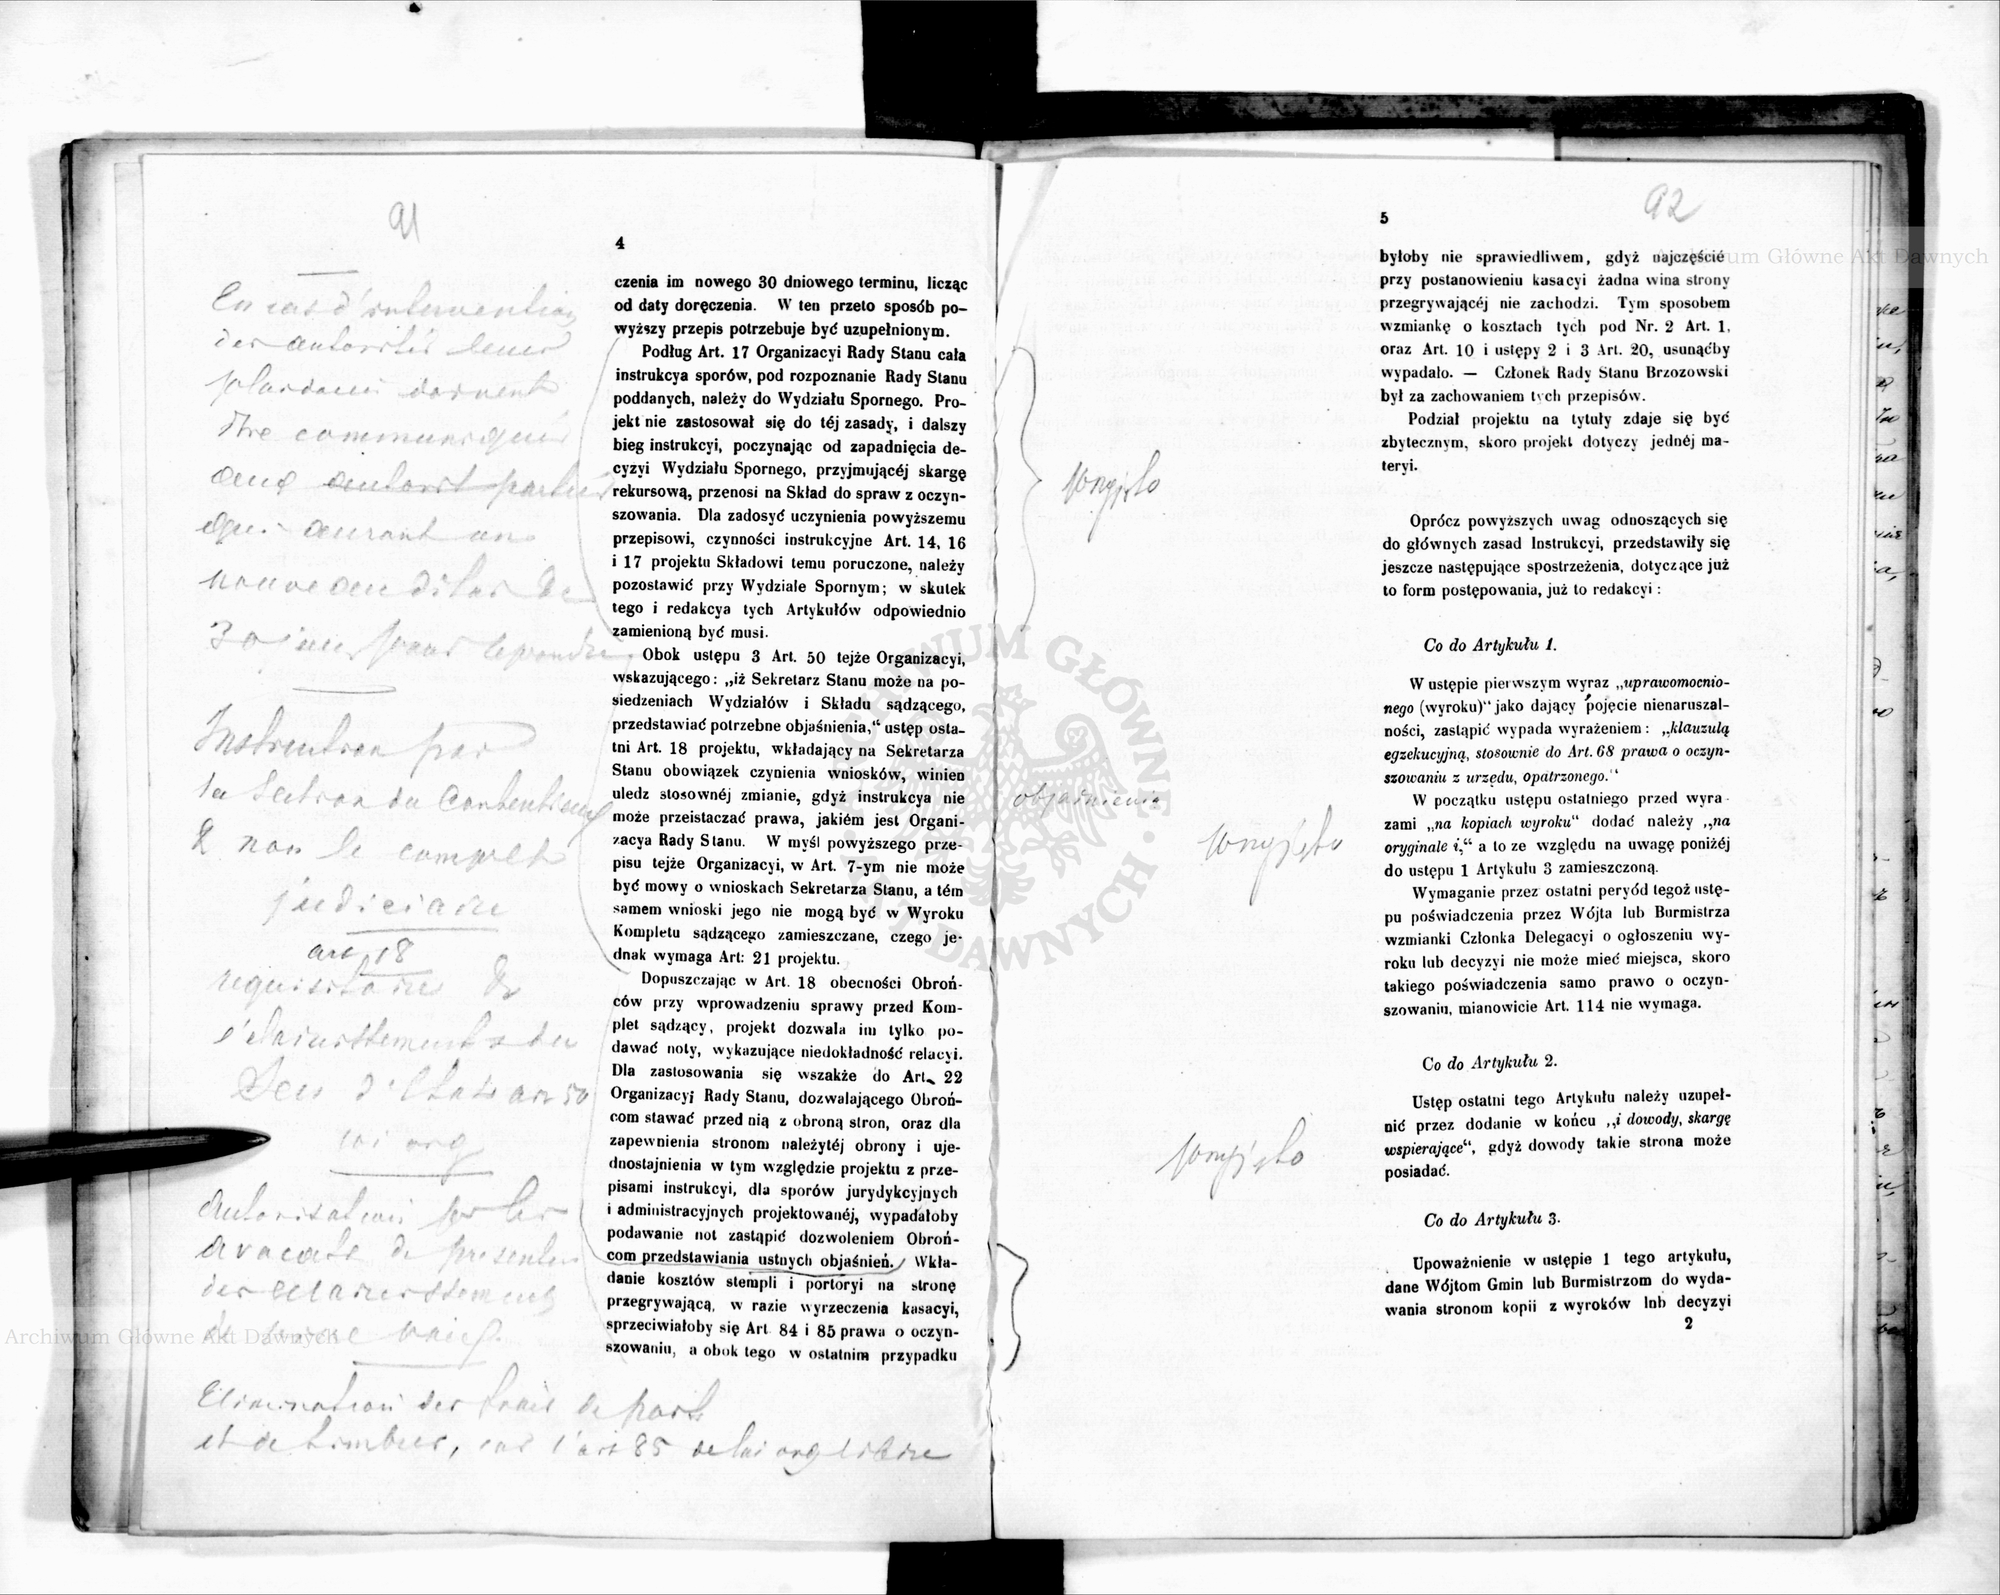 91
4
czenia im nowego 30 dniowego terminu, licząc
od daty doręczenia. W ten przeto sposób po-
wyższy przepis potrzebuje być uzupełnionym.
Podług Art. 17 Organizacyi Rady Stanu cała
instrukcya sporów, pod rozpoznanie Rady Stanu
poddanych, należy do Wydziału Spornego. Pro-
jekt nie zastosował się do téj zasady, i dalszy
bieg instrukcyi, poczynając od zapadnięcia de-
cyzyi Wydziału Spornego, przyjmującéj skargę
rekursową, przenosi na Skład do spraw z oczyn-
szowania. Dla zadosyć uczynienia powyższemu
przepisowi, czynności instrukcyjne Art. 14, 16
i 17 projektu Składowi temu poruczone, należy
pozostawić przy Wydziale Spornym; w skutek
tego i redakcya tych Artykułów odpowiednio
zamienioną być musi.
Obok ustępu 3 Art. 50 tejże Organizacyi,
wskazującego: „iż Sekretarz Stanu może na po-
siedzeniach Wydziałów i Składu sądzącego,
przedstawiać potrzebne objaśnienia,“ ustęp osta-
tni Art. 18 projektu, wkładający na Sekretarza
Stanu obowiązek czynienia wniosków, winien
uledz stosownéj zmianie, gdyż instrukcya nie
może przeistaczać prawa, jakiém jest Organi-
zacya Rady Stanu. W myśl powyższego prze-
pisu tejże Organizacyi, w Art. 7-ym nie może
być mowy o wnioskach Sekretarza Stanu, a tém
samem wnioski jego nie mogą być w Wyroku
Kompletu sądzącego zamieszczane, czego je-
dnak wymaga Art: 21 projektu.
Dopuszczając w Art. 18 obecności Obroń-
ców przy wprowadzeniu sprawy przed Kom-
plet sądzący, projekt dozwala im tylko po-
dawać noty, wykazujące niedokładność relacyi.
Dla zastosowania się wszakże do Art. 22
Organizacyi Rady Stanu, dozwalającego Obroń-
com stawać przed nią z obroną stron, oraz dla
zapewnienia stronom należytéj obrony i uje-
dnostajnienia w tym względzie projektu z prze-
pisami instrukcyi, dla sporów jurydykcyjnych
i administracyjnych projektowanéj, wypadałoby
podawanie not zastąpić dozwoleniem Obroń-
com przedstawiania ustnych objaśnień. Wkła-
danie kosztów stempli i portoryi na stronę
przegrywającą, w razie wyrzeczenia kasacyi,
sprzeciwiałoby się Art 84 i 85 prawa o oczyn-
szowaniu, a obok tego w ostatnim przypadku
En cas d'intervention
des autorités leurs
doivent
être communiqués
aux autorit parties
qui auront un
nouveau délai de
30 jours pour repondre
Instruction par
la Section du Contentieux
& non le complet
judiciaire
art 18
requisitoire &
art 50
loi org
Autorisation par les
avocats de presenter
des eclaircissements
de vive voix.
Elimination des frais de port
et de timbres, car l'art 85 de loi org
92
5
byłoby nie sprawiedliwem, gdyż najczęście
przy postanowieniu kasacyi żadna wina strony
przegrywającéj nie zachodzi. Tym sposobem
wzmiankę o kosztach tych pod Nr. 2 Art. 1,
oraz Art. 10 i ustępy 2 i 3 Art. 20, usunąćby
wypadało. — Członek Rady Stanu Brzozowski
był za zachowaniem tych przepisów.
Podział projektu na tytuły zdaje się być
zbytecznym, skoro projekt dotyczy jednéj ma-
teryi.
Oprócz powyższych uwag odnoszących się
do głównych zasad Instrukcyi, przedstawiły się
jeszcze następujące spostrzeżenia, dotyczące już
to form postępowania, już to redakcyi:
Co do Artykułu 1.
W ustępie pierwszym wyraz „uprawomocnio-
nego (wyroku)“ jako dający pojęcie nienaruszal-
ności, zastąpić wypada wyrażeniem: „klauzulą
egzekucyjną, stosownie do Art. 68 prawa o oczyn-
szowaniu z urzędu, opatrzonego.“
W początku ustępu ostatniego przed wyra-
zami „na kopiach wyroku“ dodać należy „na
oryginale i,“ a to ze względu na uwagę poniżéj
do ustępu 1 Artykułu 3 zamieszczoną.
Wymaganie przez ostatni peryód tegoż ustę-
pu poświadczenia przez Wójta lub Burmistrza
wzmianki Członka Delegacyi o ogłoszeniu wy-
roku lub decyzyi nie może mieć miejsca, skoro
takiego poświadczenia samo prawo o oczyn-
szowaniu, mianowicie Art. 114 nie wymaga.
Co do Artykułu 2.
Ustęp ostatni tego Artykułu należy uzupeł-
nić przez dodanie w końcu „i dowody, skargę
wspierające“, gdyż dowody takie strona może
posiadać.
Co do Artykułu 3.
Upoważnienie w ustępie 1 tego artykułu,
dane Wójtom Gmin lub Burmistrzom do wyda-
wania stronom kopii z wyroków lnb decyzyi
2
objaśnienia
Archiwum Główne Akt Dawnych
ARCHIWUM GŁÓWNE AKT DAWNYCH
Archiwum Główne Akt Dawnych